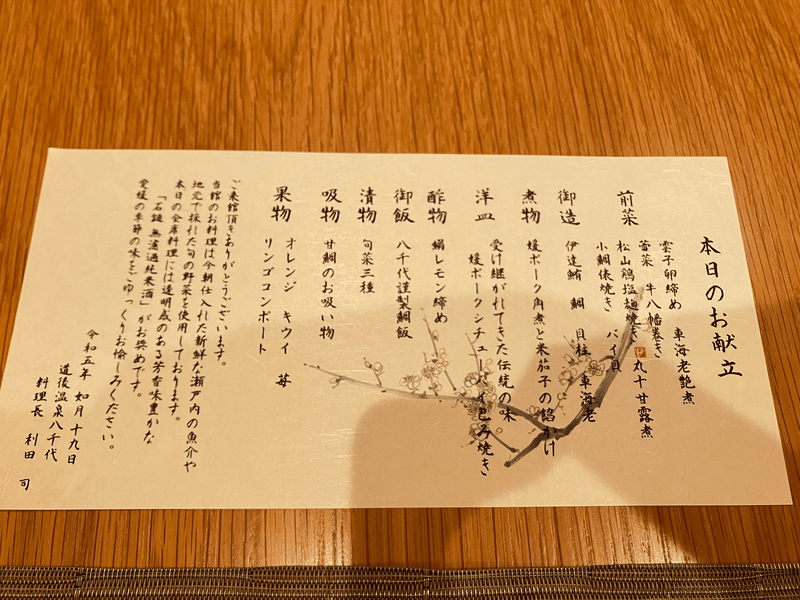 本日のお献立
前菜 雲子卵締め 車海老艶煮
蕾菜 牛八幡巻き 丸十甘露煮
松山鶏塩麹焼き
小鯛俵焼き バイ貝
御造 伊達鮪 鯛 貝柱 車海老
煮物 媛ポーク角煮と米茄子の餡かけ
洋皿 受け継がれてきた伝統の味
媛ポークシチューパイ包み焼き
酢物 鰯レモン締め
御飯 八千代謹製鯛飯
漬物 旬菜三種
吸物 甘鯛のお吸い物
果物 オレンジ キウイ 苺
リンゴコンポート
ご来館頂きありがとうございます。
当館のお料理は今朝仕入れた新鮮な瀬戸内の魚介や
地元で採れた旬の野菜を使用しております。
本日の会席料理には透明感のある芳香味豊かな
「石鎚 無濾過純米酒」がお奨めです。
愛媛の季節の味をごゆっくりお愉しみください。
令和五年 如月 十九日
道後温泉八千代
料理長 利田 司